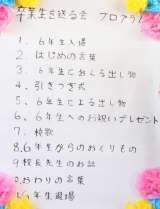 卒業生を送る会 プログラム
1. 6年生入場
2. はじめの言葉
3. 6年生におくる出し物
4. 引きつぎ式
5. 6年生による出し物
6. 6年生へのお祝いプレゼント
7. 校歌
8. 6年生からのおくりもの
9 校長先生のお話
10. おわりの言葉
11. 6年生退場